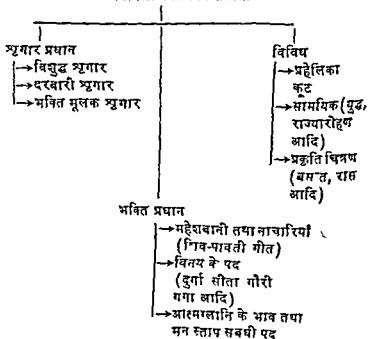 श्रृगार प्रधान
→विशुद्ध श्रृगार
→दरबारी श्रृगार
→भक्ति मूलक श्रृगार
विविध
→प्रहेलिका
कूट
→सामयिक (युद्ध,
राज्यारोहण
आदि)
→प्रकृति चित्रण
(बसन्त, रास
आदि)
भक्ति प्रधान
→महेशबानी तथा नाचारियाँ
(शिव-पावती गीत)
→विनय के पद
(दुर्गा सीता गौरी
गगा आदि)
→आत्मग्लानि के भाव तथा
मन स्ताप सबधी पद